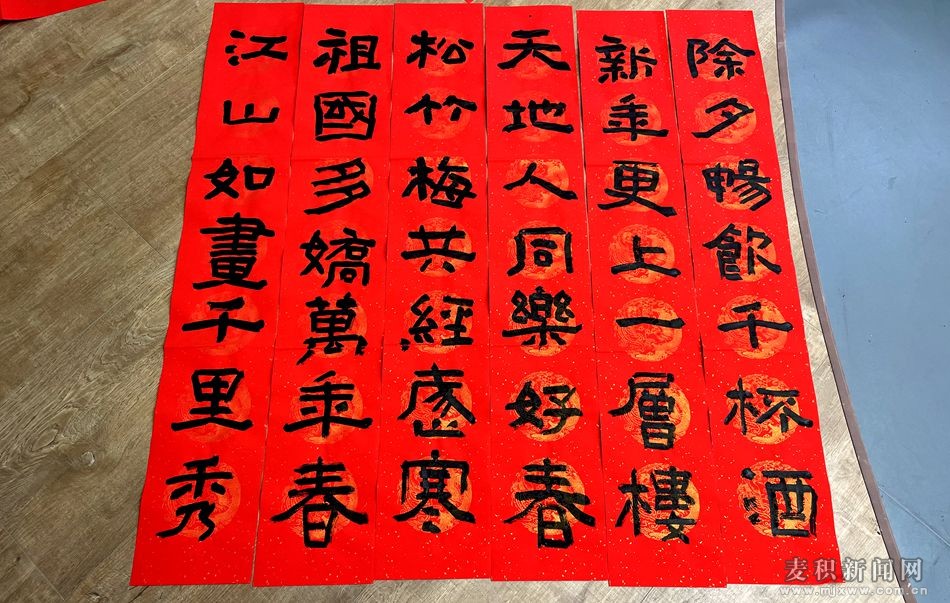 除夕暢飲千杯酒
新年更上一層樓
天地人同樂好春
松竹梅共經歲寒
祖國多嬌萬年春
江山如畫千里秀
麦积新闻网
www.mjxww.com.cn